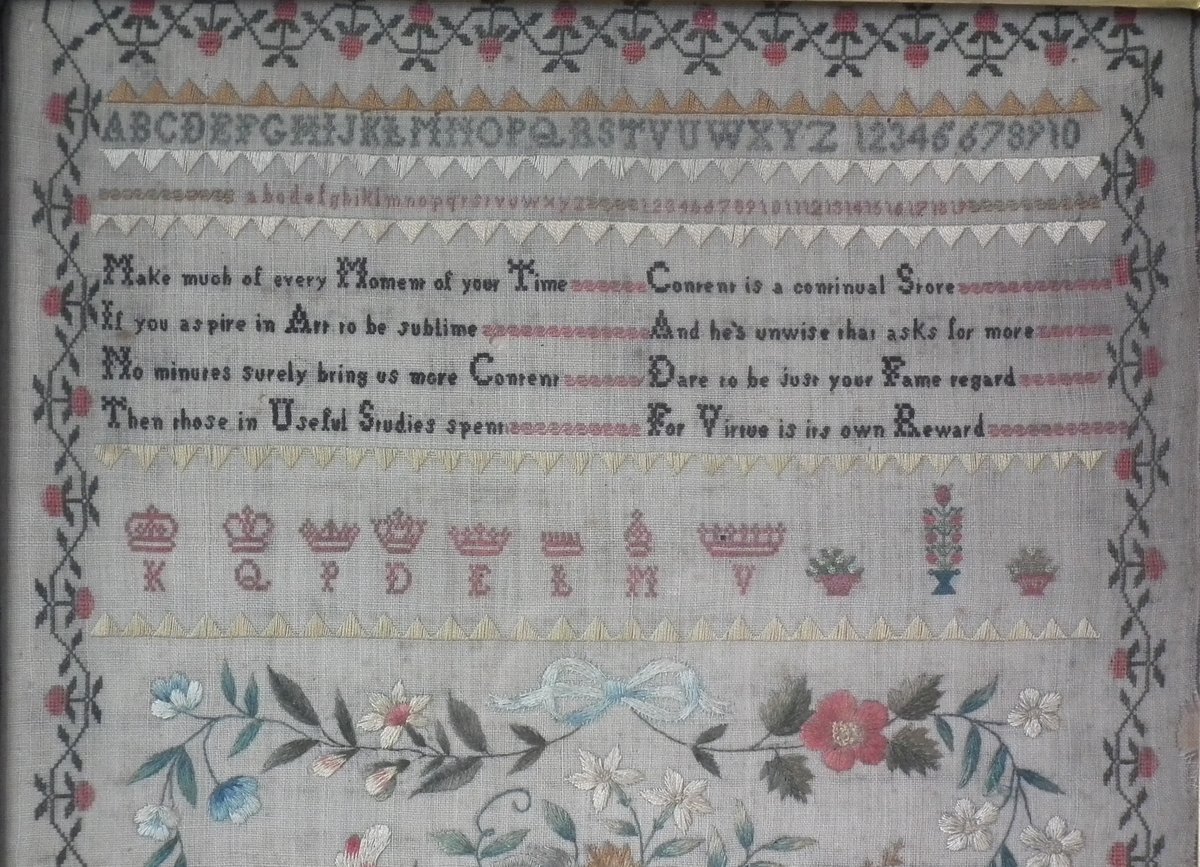 ABCDEFGHIJKLMNOPQRSTVUWXYZ 12345678910
abcdefghiklmnopqrstvuwxyz 12345678910111213141516171819
Make much of every Moment of your Time
If you aspire in Art to be sublime
No minutes surely bring us more Content
Then those in Useful Studies spent
Content is a continual Store
And he's unwise that asks for more
Dare to be just your Fame regard
For Virtue is its own Reward
K Q P D E L M V